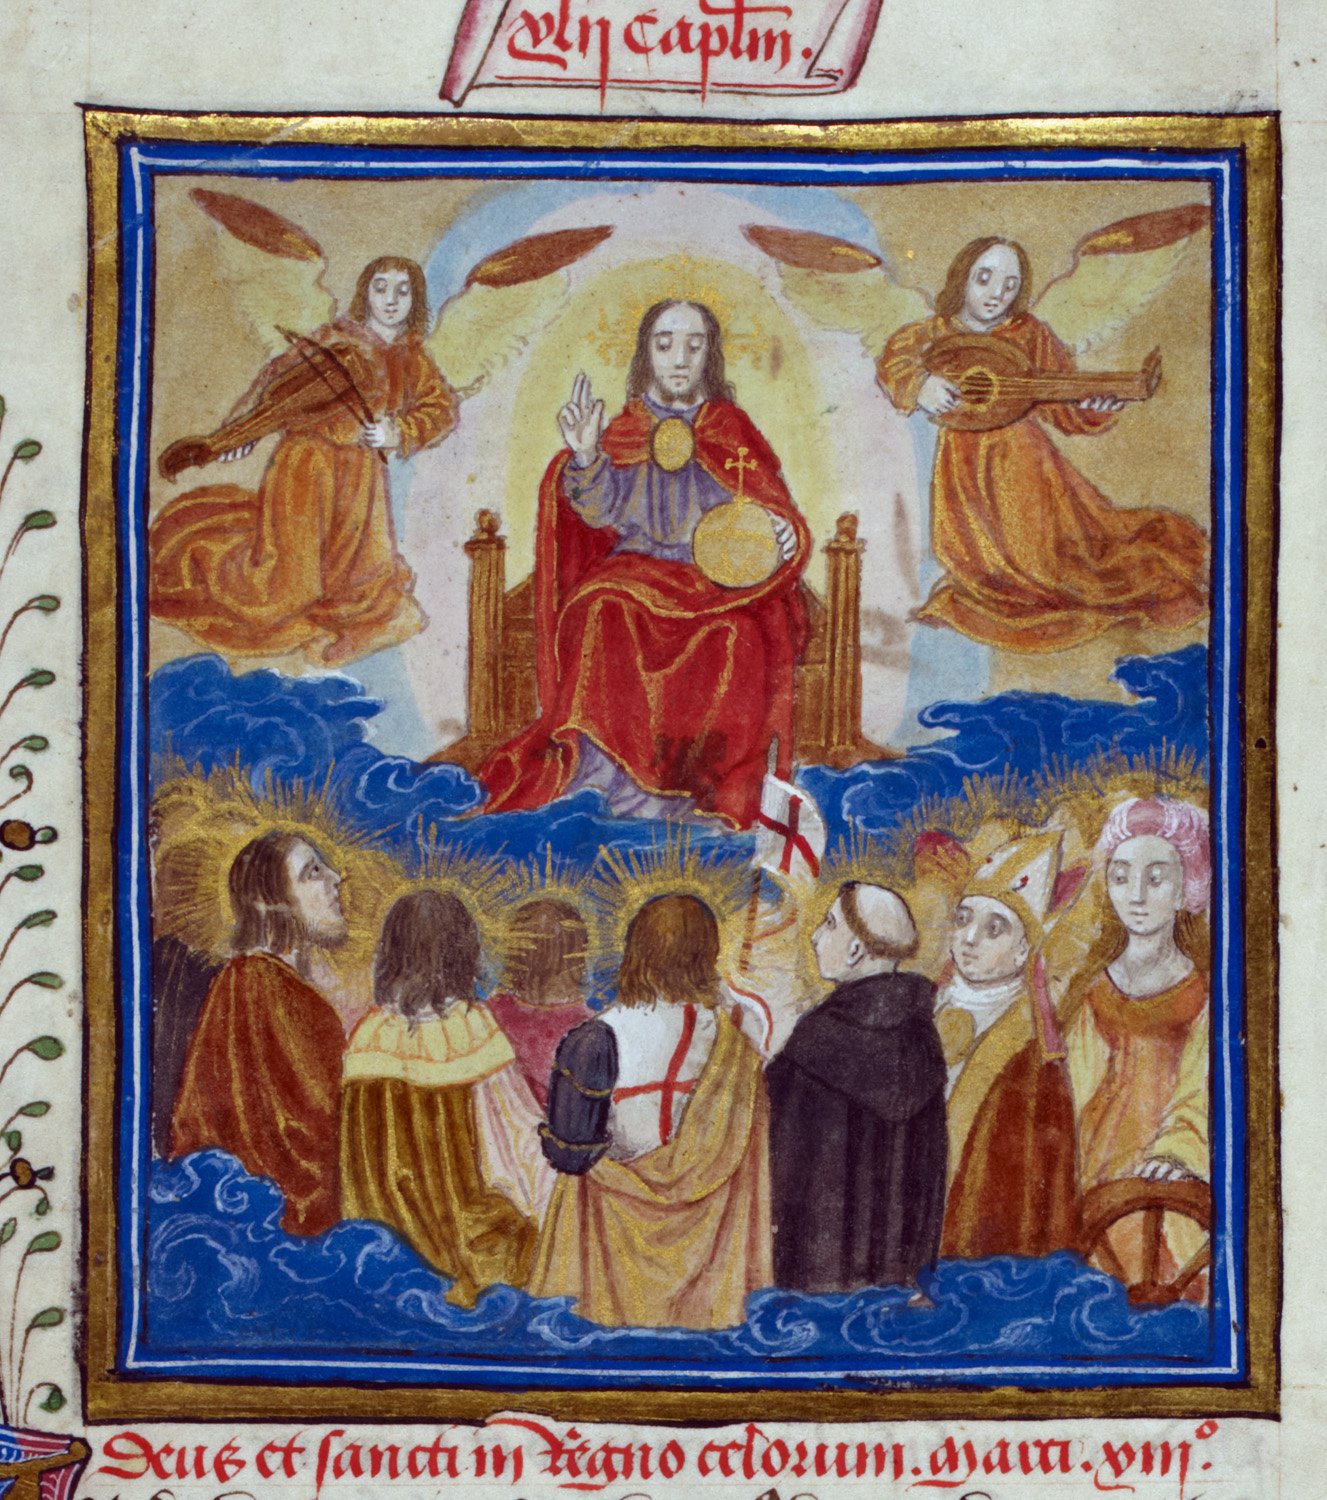 xlij Capl̄m.
Deus et sancti in Regno celorum. Marci. xiij°.